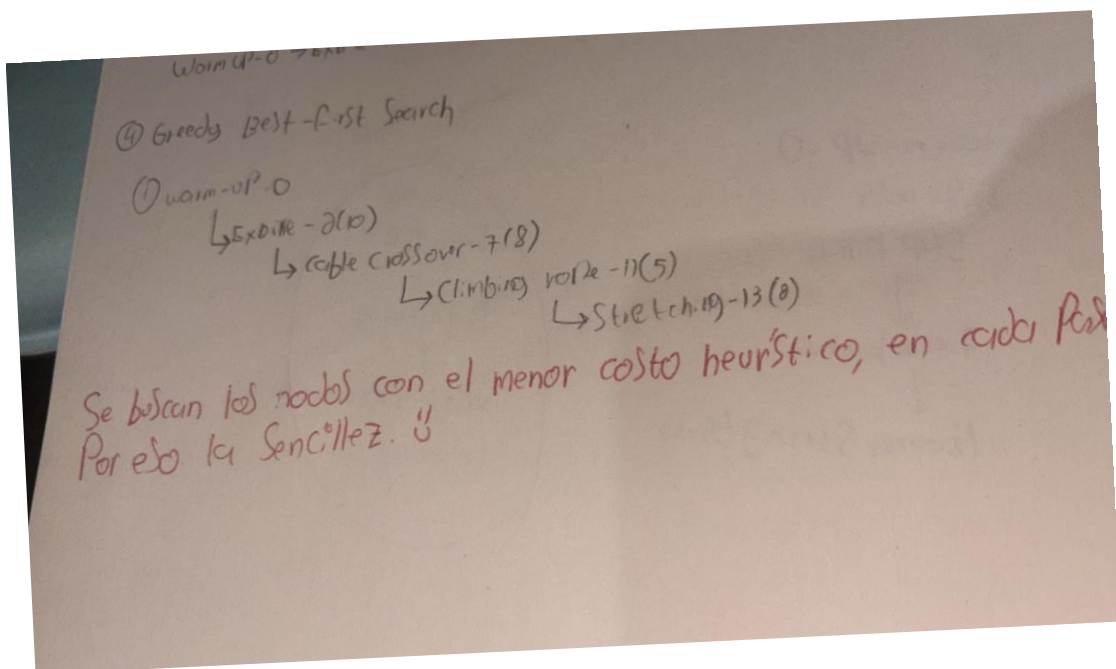 Warm UP-0 →
④ Greedy Best-first Search
① warm-up-0
↳ Exbike - 2(10)
↳ cable crossover - 7(8)
↳ Climbing rope - 11(5)
↳ Stretching - 13(0)
Se buscan los nodos con el menor costo heurístico, en cada
Por eso la sencillez. :)